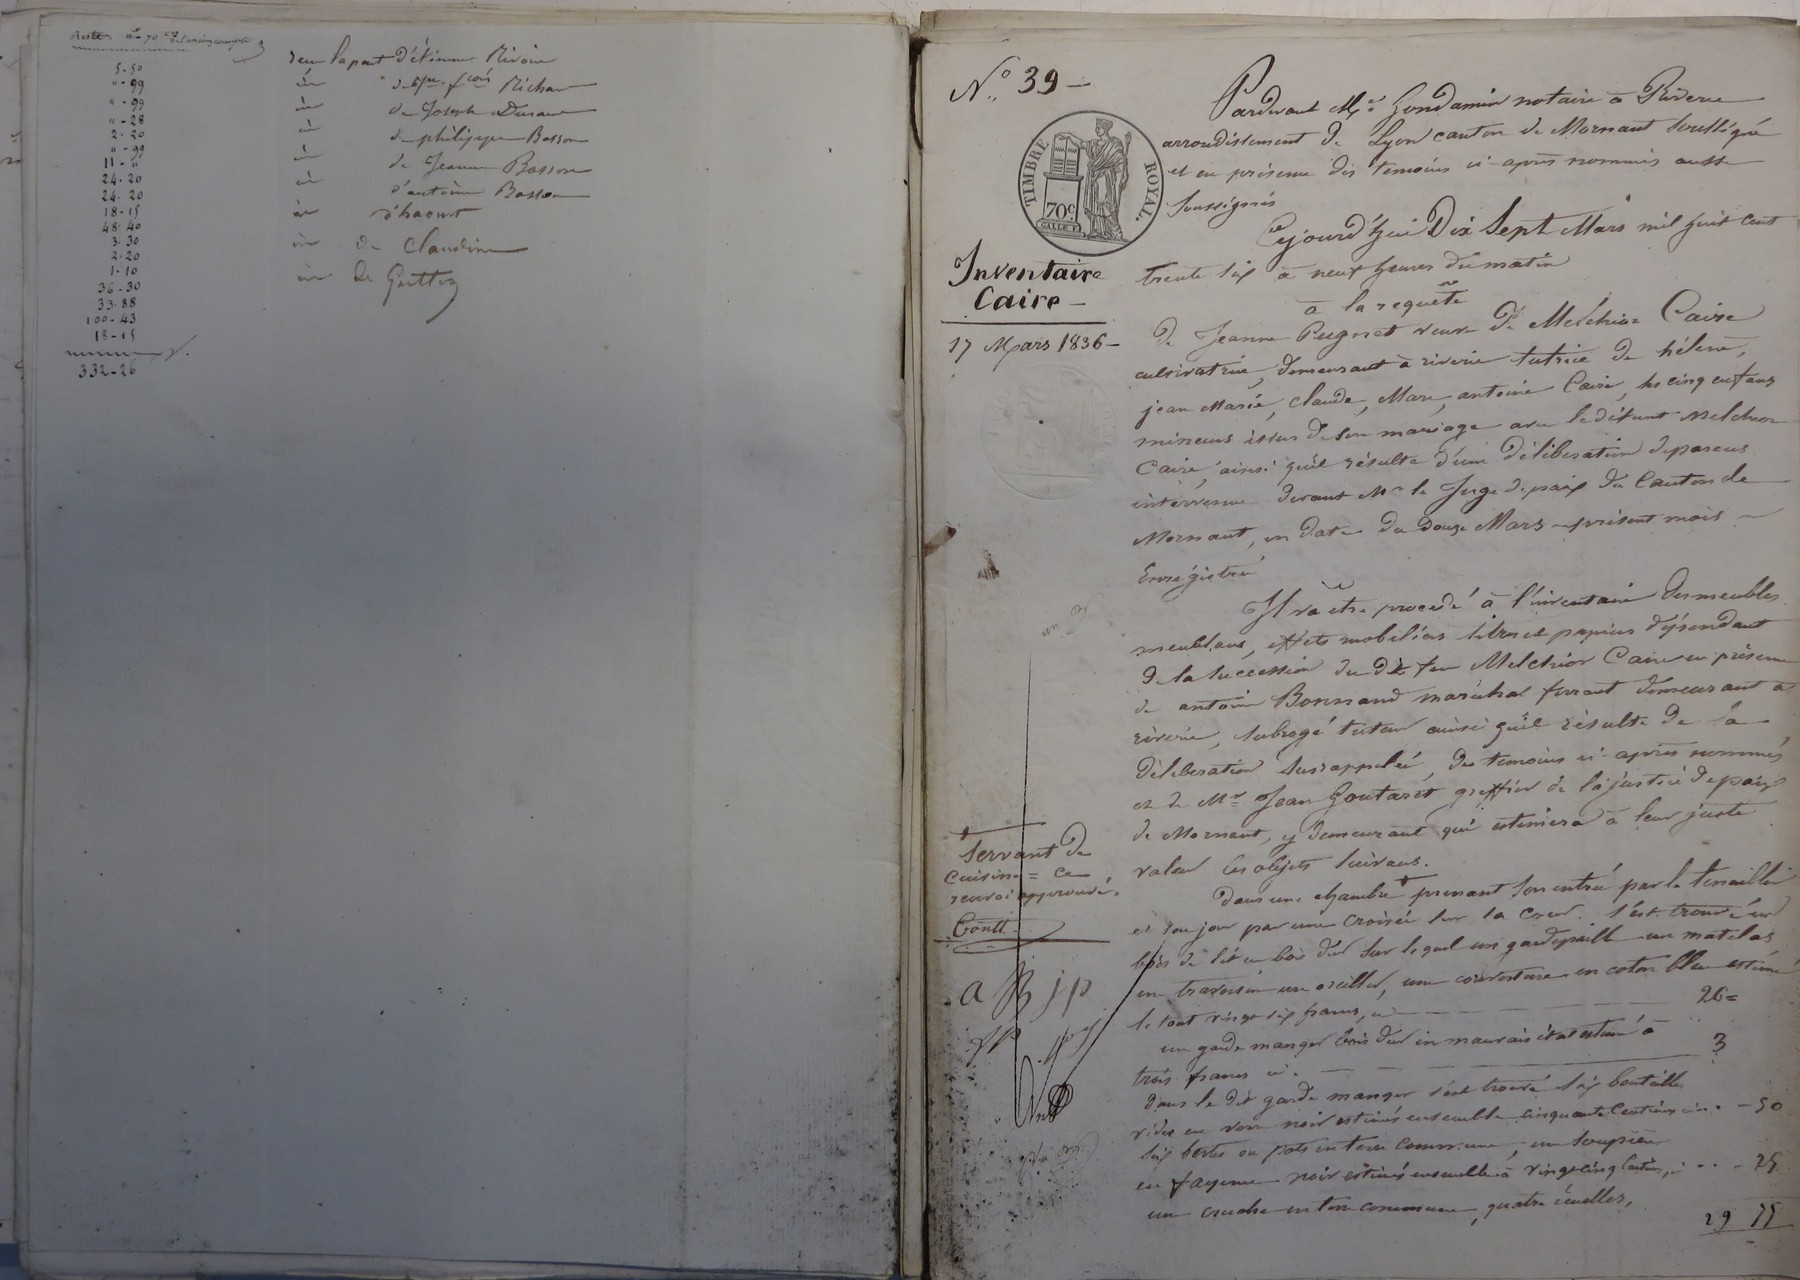 5-50
"-99
"-99
"-28
2-20
"-99
11-"
24-20
24-20
18-15
48-40
3-30
2-20
1-10
36-30
33-88
100-43
18-15
332-26
reçu la part d'étienne Rivoire
de Joseph
de philippe Basson
de Jeanne Basson
d'antoine Basson
de Claudine
N.o 39 -
TIMBRE ROYAL.
70c.
Inventaire
Caire -
17 Mars 1836 -
Pardevant Me. Gondamin notaire à Riverie
arrondissement de Lyon canton de Mornant soussigné
et en présence des temoins ci-après nommés aussi
soussignés
Cejourd'hui Dix Sept Mars mil huit cent
trente six à neuf heures du matin
à la requête
de Jeanne Pugnet veuve de Melchior Caire
cultivatrice, demeurant à riverie tutrice de héleine,
jean Marie, Claude, Marie, antoine Caire, ses cinq enfans
mineurs issus de son mariage avec le défunt Melchior
Caire, ainsi qu'il résulte d'une délibération de parens
intervenue devant Mr le Juge de paix du Canton de
Mornant, en date du douze Mars présent mois
Enregistrée
Il va etre procédé à l'inventaire des meubles
meublans, effets mobiliers titres et papiers dépendant
de la succession du dit feu Melchior Caire en présence
de antoine Bonnand maréchal ferrant demeurant à
riverie, subrogé tuteur ainsi qu'il résulte de la
déliberation susrappelée, des temoins ci-après nommés
et de Mr Jean Goutaret greffier de la justice de paix
de Mornant, y demeurant qui estimera à leur juste
valeur les objets suivans.
Dans une chambre prenant son entrée par la
et son jour par une croisée sur la cour. s'est trouvé un
bois de lit en bois dur sur lequel un gardepaille un matelas
un traversin un oreiller, une couverture en coton bleu estimé
le tout vingt six francs, ci 26=
un garde manger bois dur en mauvais état estimé à
trois francs ci. 3
dans le dit garde manger s'est trouvé six bouteilles
vides en verre noir estimés ensemble cinquante centimes ci - 50
six bertes ou pots en terre commune, une soupière
en fayence noir estimés ensemble à vingt cinq centimes, ci - 25
une cruche en terre commune, quatre écuelles,
29 75
servant de
cuisine = ce
renvoi approuvé.
Goutt
a B j p